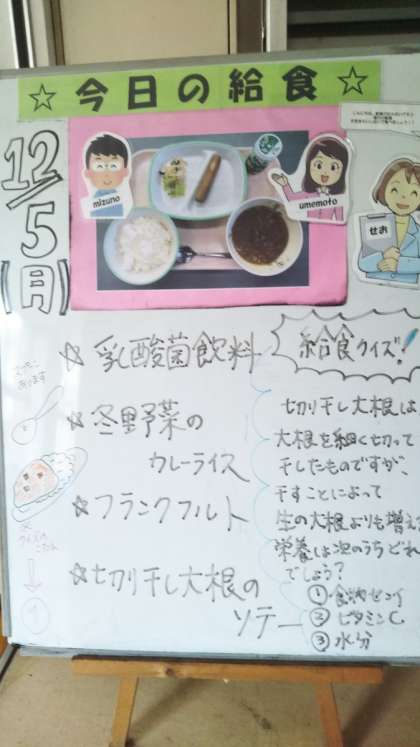 ☆ 今日の給食 ☆
12/5(月)
mizuno
umemoto
せお
☆ 乳酸菌飲料
☆ 冬野菜の
カレーライス
☆ フランクフルト
☆ 切り干し大根の
ソテー
給食クイズ!
切り干し大根は
大根を細く切って
干したものですが、
干すことによって
生の大根よりも増え
栄養は次のうちどれ
でしょう?
① 食物センイ
② ビタミンC
③ 水分
あります
クイズのこたえ
①